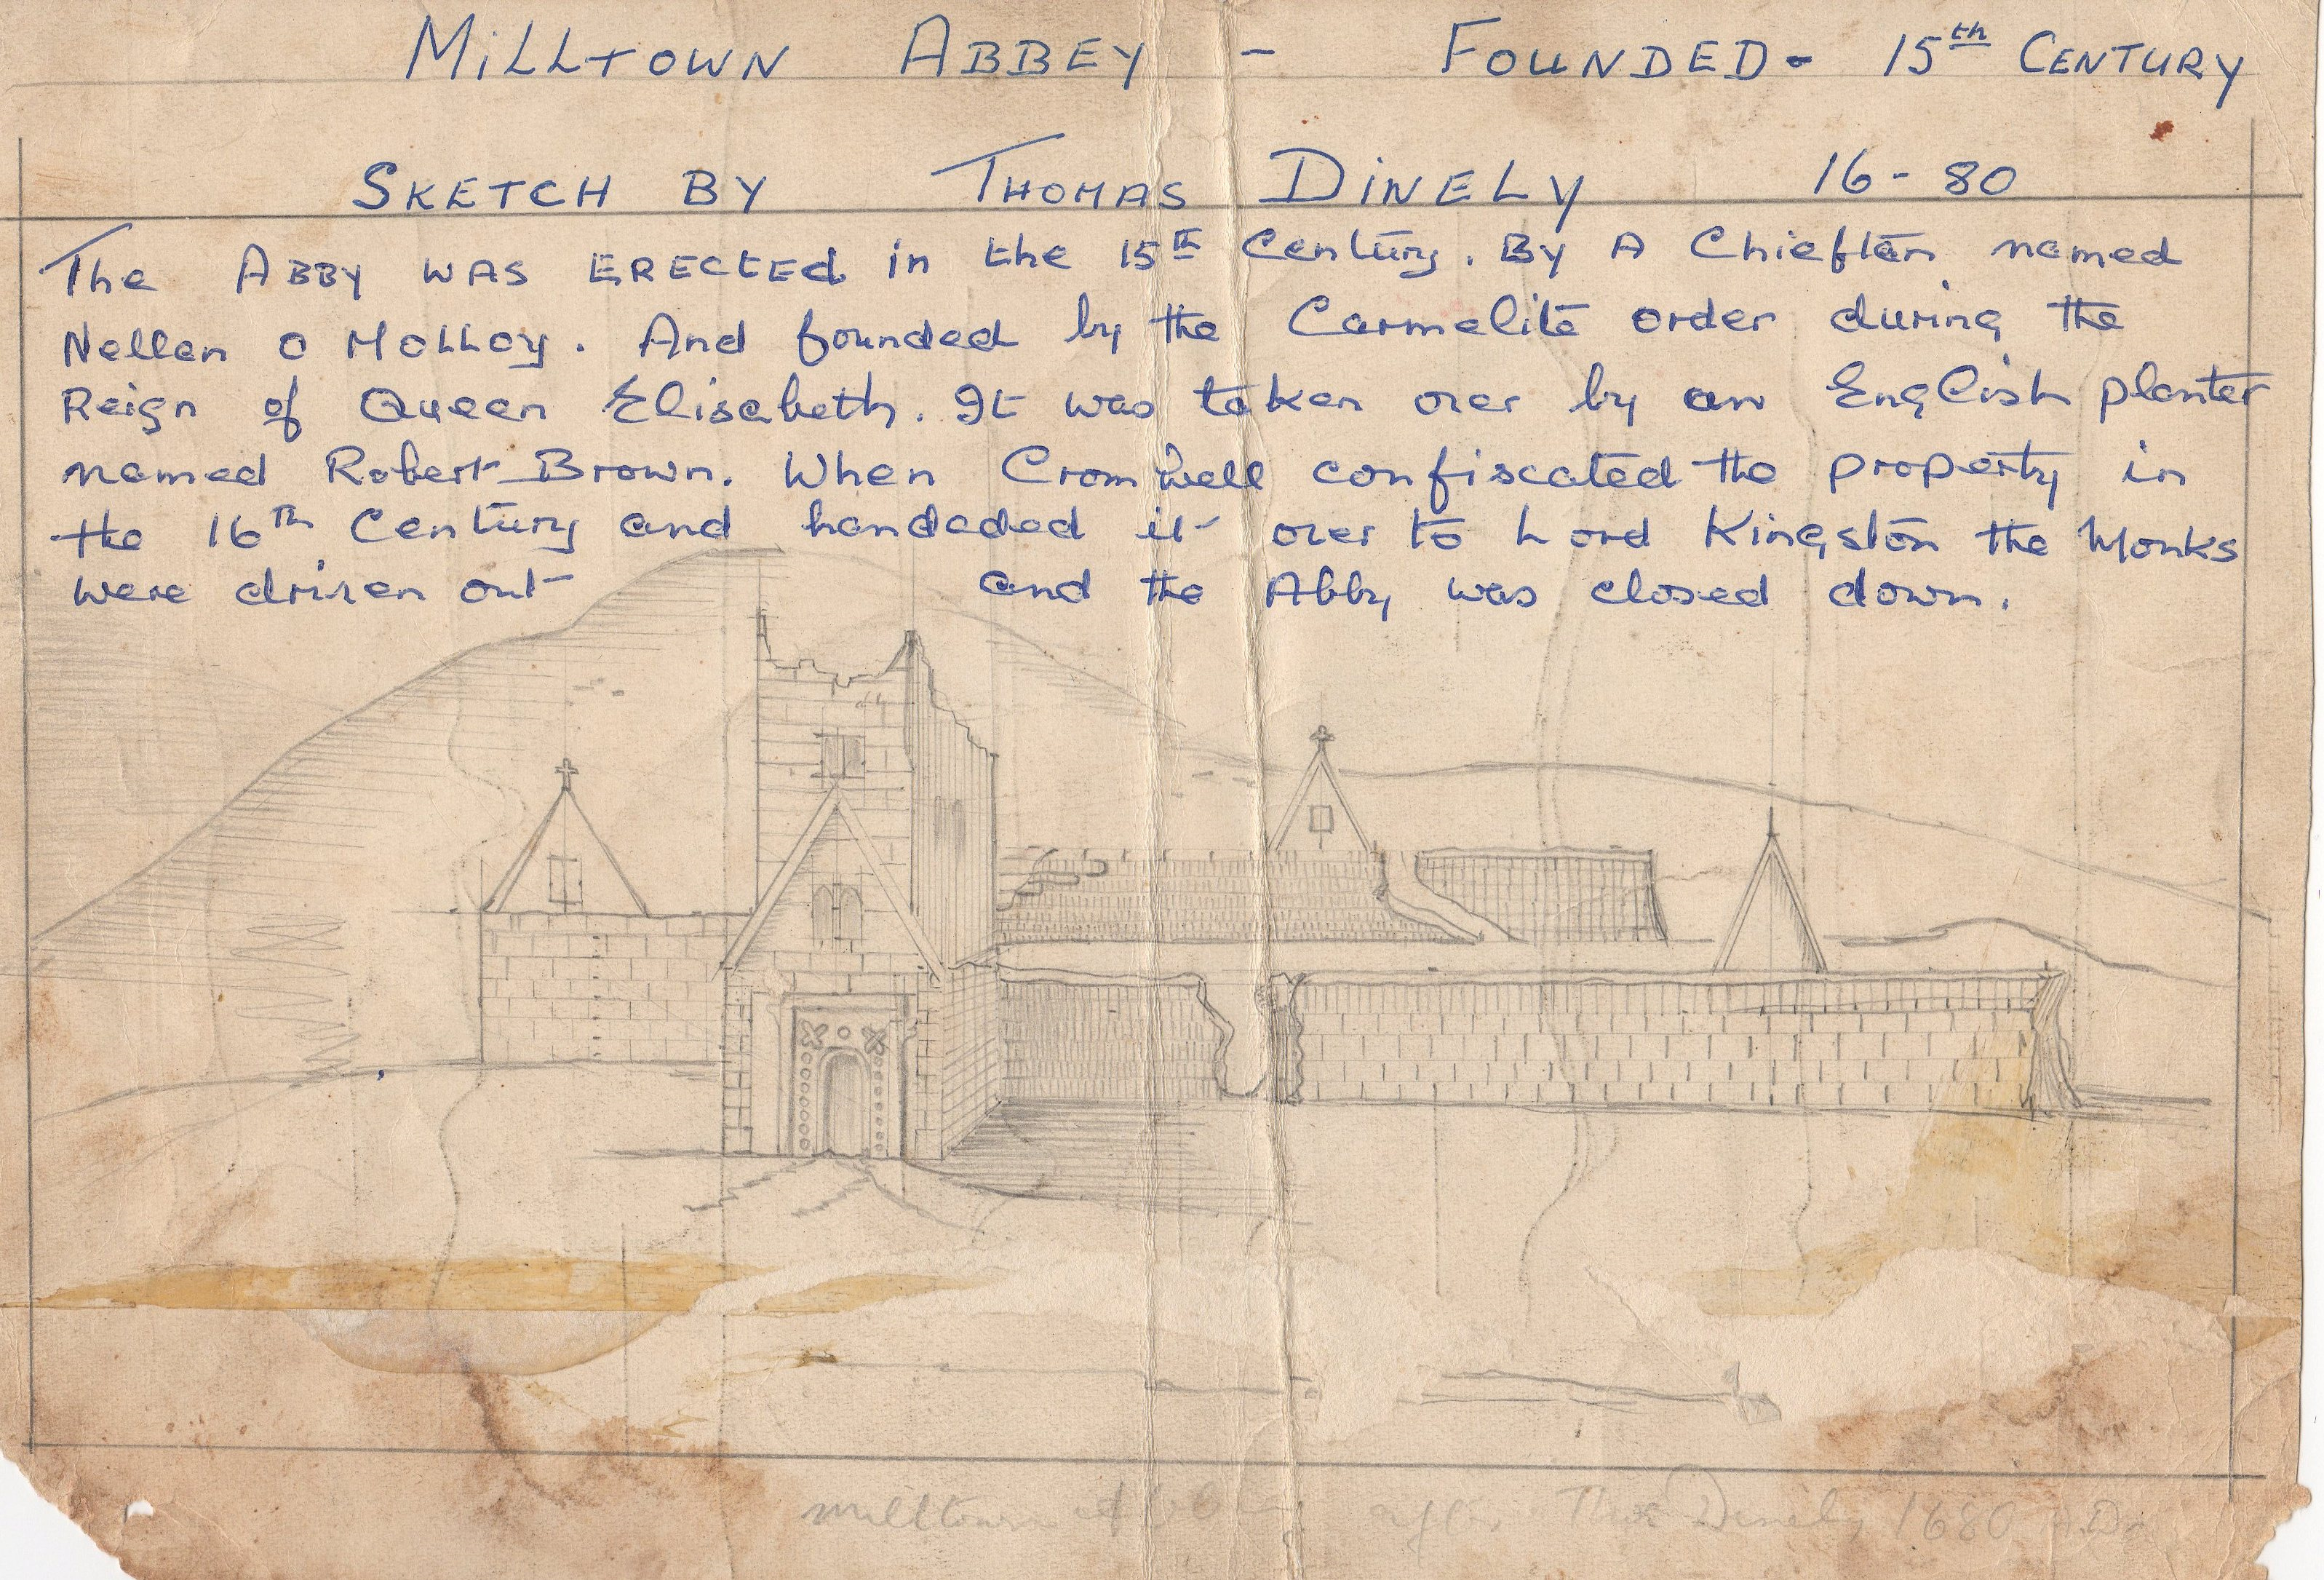 MiLLTOWN ABBEY - FOUNDED - 15th CENTURY
SKETCH BY THOMAS DiNELY 16-80
The ABBY WAS ERECTED in the 15th Century. By A Chieftan named
Nellan O MOLLOY. And founded by the Carmelite order during the
Reign of Queen Elisabeth. It was taken over by an English planter
named Robert Brown. When Cromwell confiscated the property in
the 16th Century and handaded it over to Lord Kingston the Monks
were driven out and the Abby was closed down.
Milltown Abbey after Thos Dinely 1680 A.D.